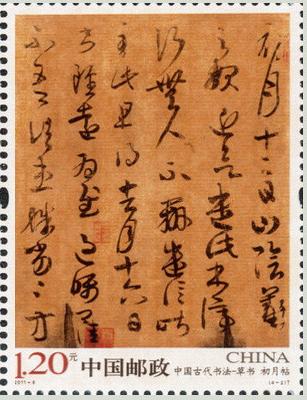 初月十二日山陰羲
之報近欲遣此書停
行無人不辦遣信昨
至此旦得去月十六日
書雖遠為慰過囑卿佳
不吾諸患殊勞〻方
1.20元 中国邮政 CHINA
中国古代书法-草书 初月帖
2011-6 (4-2)T